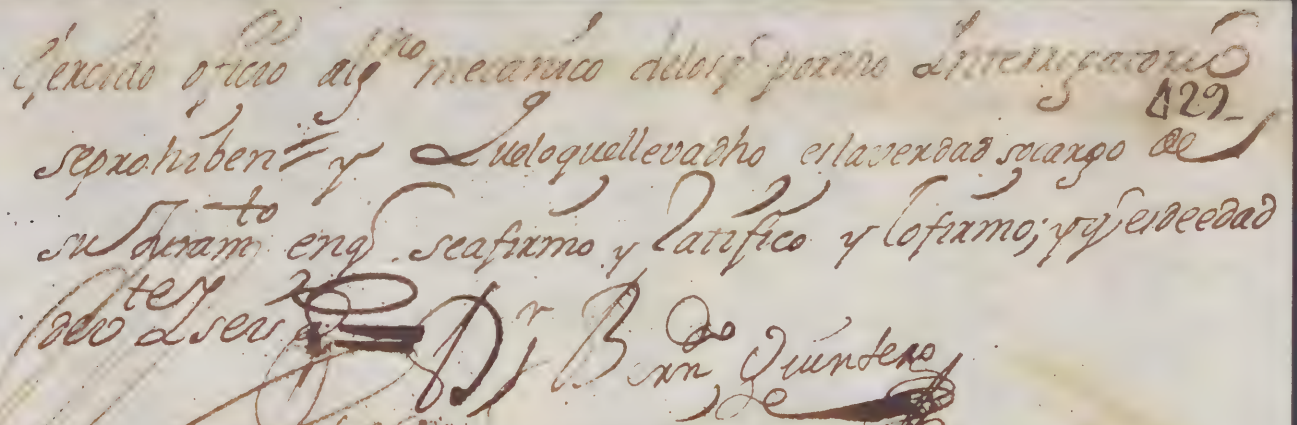 Exercido oficio algno mecanico delos q pordho Interrogatorio
129
seprohiben= y Queloquellevadho eslaverdad socargo de
su Juramto enq seafirmo y Ratifico y lofirmo; yq esdeedad
de Vtey Seis as
Dr Berndo Quintero